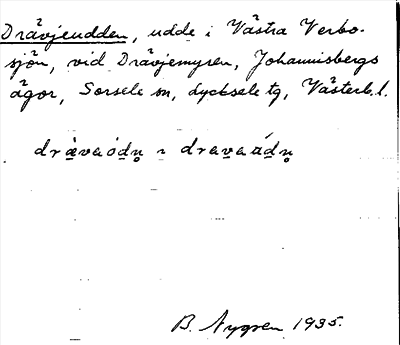 Drävjeudden, udde i Västra Verbo-
sjön, vid Drävjemyren, Johannisbergs
ägor, Sorsele sn, Lycksele tg, Västerb. l.
B. Nygren 1935.